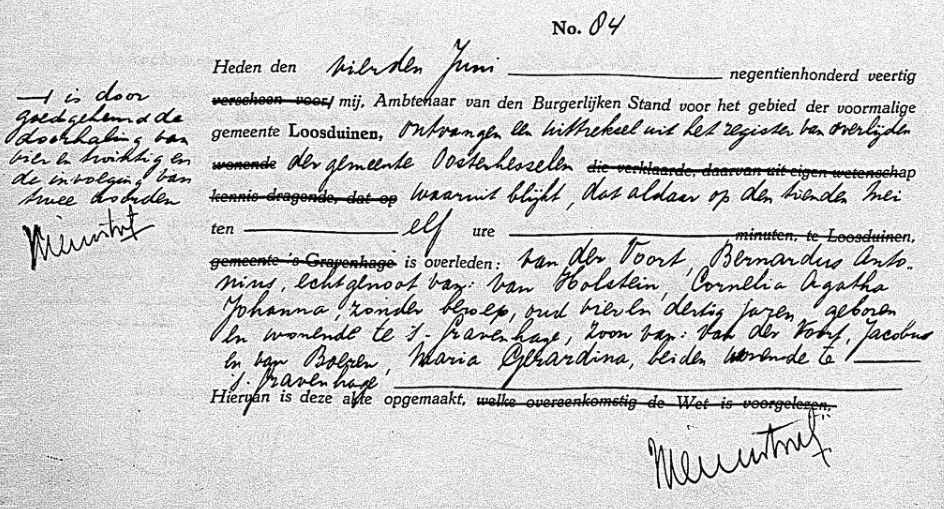 No. 84
Heden den vierden Juni negentienhonderd veertig
verscheen voor mij, Ambtenaar van den Burgerlijken Stand voor het gebied der voormalige
gemeente Loosduinen, ontvangen een uittreksel uit het register van overlijden
wonende der gemeente Oosterhesselen die verklaarde, daarvan uit eigen wetenschap
kennis dragende, dat op waaruit blijkt, dat aldaar op den tienden Mei
ten elf ure minuten, te Loosduinen,
gemeente 's-Gravenhage is overleden: van der Voort, Bernardus Anto-
nius, echtgenoot van: van Holstein, Cornelia Agatha
Johanna, zonder beroep, oud vier en dertig jaren, geboren
en wonende te 's-Gravenhage, zoon van: van der Voort, Jacobus
en van Boeren, Maria Gerardina, beiden wonende te
's-Gravenhage
Hiervan is deze akte opgemaakt, welke overeenkomstig de Wet is voorgelezen.
is door
goedgekeurd de
doorhaling van
vier en twintig en
de invoeging van
twee woorden